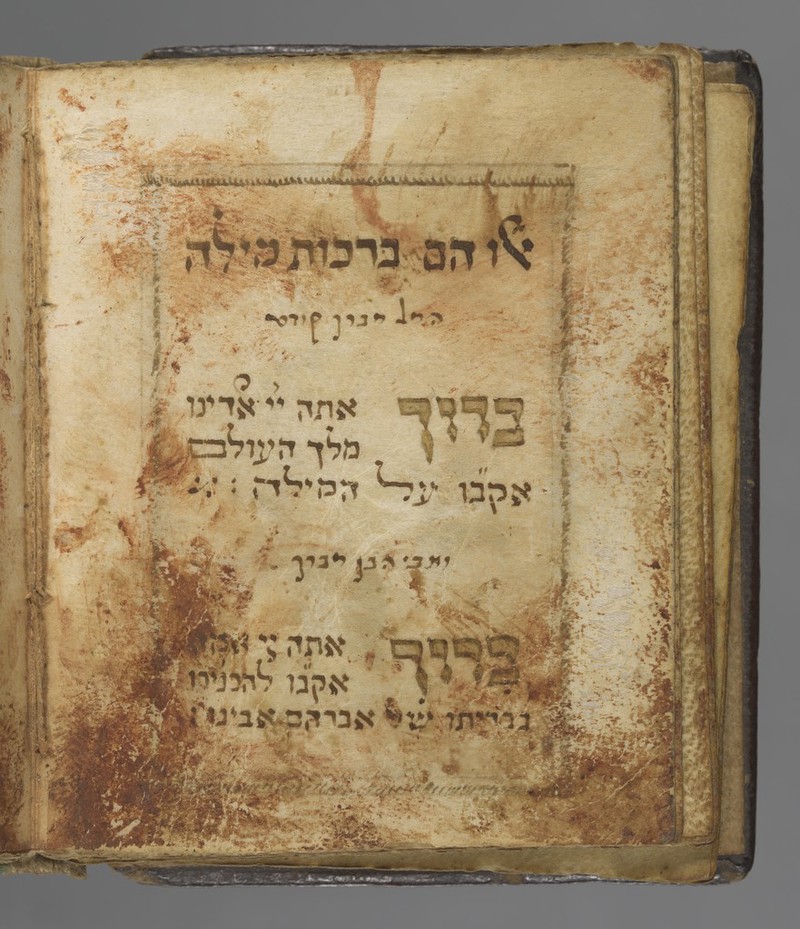 אלו הם ברכות מילה
ברוך אתה יי אלדינו
מלך העולם
אקב״ו על המילה :
אבי הבן
ברוך אתה יי
אקב״ו להכניסו
בבריתו של אברהם אבינו :